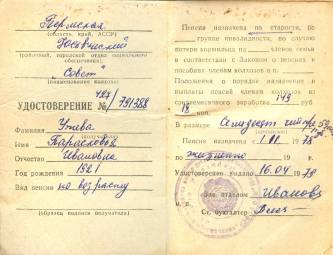 Пермская
(область, край, АССР)
Косинский
(районный, городской отдел социального
обеспечения)
"Совет"
(наименование колхоза)
УДОСТОВЕРЕНИЕ № 484/791388
Фамилия
Имя Парасковья
Отчество Ивановна
Год рождения 1921
Вид пенсии по возрасту
(образец подписи получателя)
Пенсия назначена по старости, по
группе инвалидности, по случаю
потери кормильца на членов семьи
в соответствии с Законом о пенсиях
и пособиях членам колхозов и п.
Положения о порядке назначения и
выплаты пенсий членам колхозов из
среднемесячного заработка 143
руб
18 коп.
В размере Семьдесят
(прописью)
Пенсия назначена с 1.01 1978
по пожизненно 19 г.
Удостоверение выдано 16.04 1979
Зав. отделом Иванова
М. п.
Ст. бухгалтер